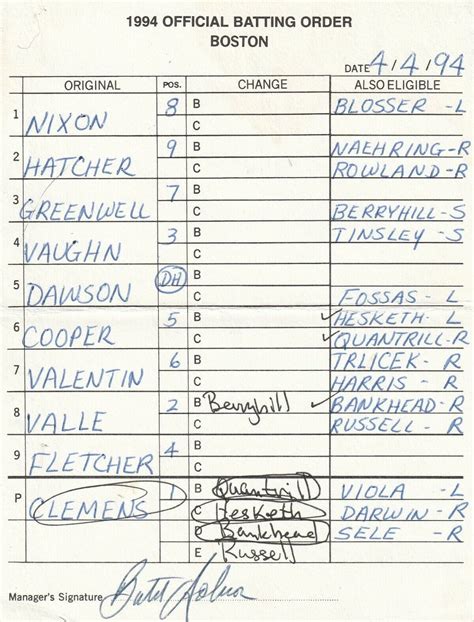 1994 OFFICIAL BATTING ORDER
BOSTON
DATE 4/4/94
ORIGINAL POS. CHANGE ALSO ELIGIBLE
1 NIXON 8 B BLOSSER - L
C
2 HATCHER 9 B NAEHRING - R
C ROWLAND - R
3 GREENWELL 7 B
C BERRYHILL - S
4 VAUGHN 3 B TINSLEY - S
C
5 DAWSON DH B
C FOSSAS - L
6 COOPER 5 B HESKETH - L
C QUANTRILL - R
7 VALENTIN 6 B TRLICEK - R
C HARRIS - R
8 VALLE 2 B Berryhill BANKHEAD - R
C RUSSELL - R
9 FLETCHER 4 B
C
P CLEMENS 1 B Quantrill VIOLA - L
C Hesketh DARWIN - R
D Bankhead SELE - R
E Russell
Manager's Signature